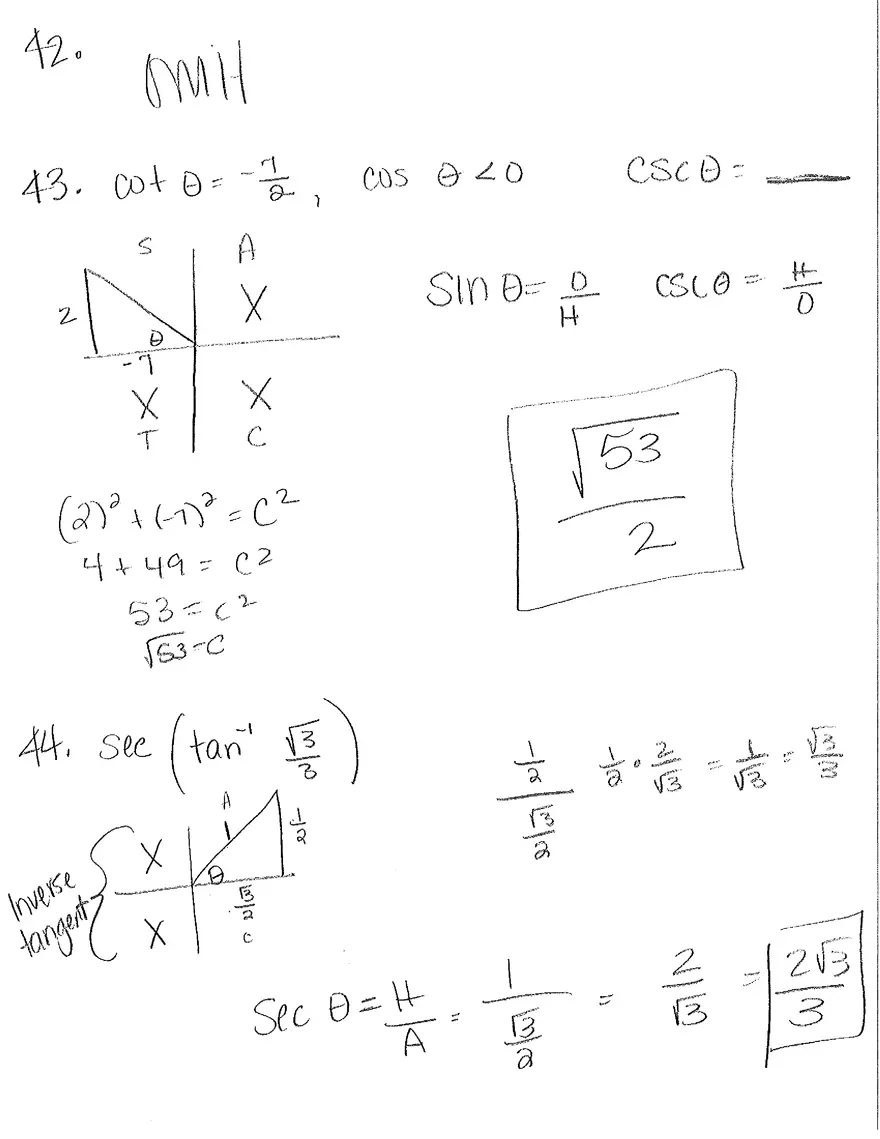 42.
43. cot θ = -7/2, cos θ < 0 csc θ = ___
S A
2 θ X
-7
X X
T C
sin θ = O/H csc θ = H/O
√53/2
(2)² + (-7)² = c²
4 + 49 = c²
53 = c²
√53 = c
44. sec (tan⁻¹ √3/3)
(1/2)/(√3/2) 1/2 · 2/√3 = 1/√3 = √3/3
A
X 1 1/2
θ
Inverse tangent { X √3/2
C
sec θ = H/A = 1/(√3/2) = 2/√3 = 2√3/3